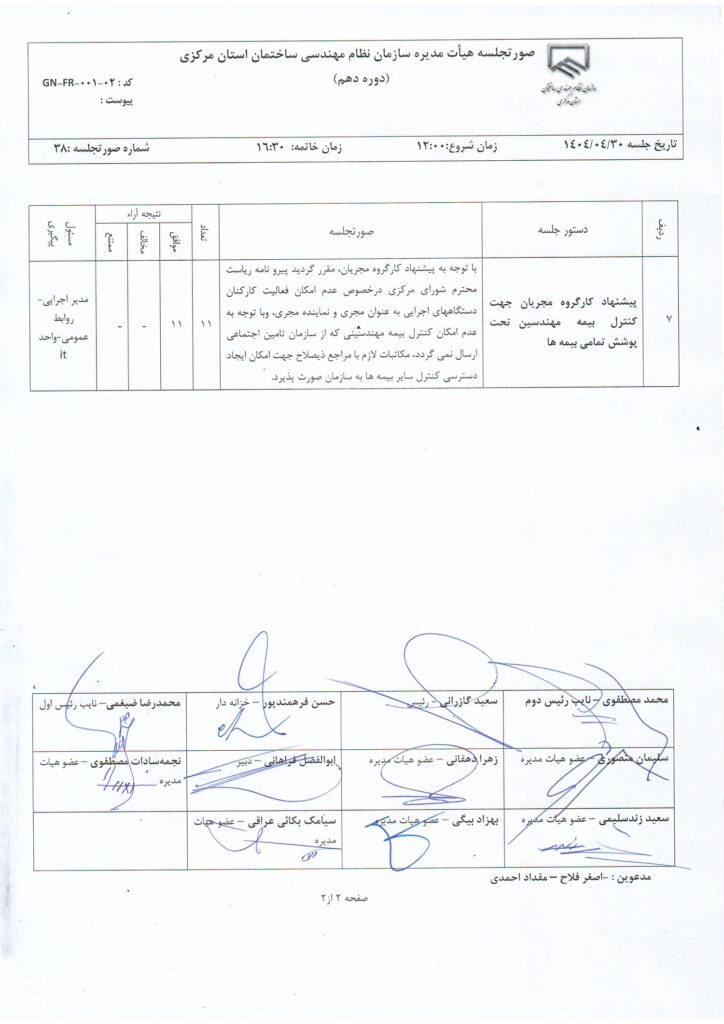 صورتجلسه هیأت مدیره سازمان نظام مهندسی ساختمان استان مرکزی
(دوره دهم)
سازمان نظام مهندسی ساختمان
استان مرکزی
کد : GN-FR-۰۰۱-۰۲
پیوست :
تاریخ جلسه ۱۴۰۴/۰۴/۳۰ زمان شروع:۱۲:۰۰ زمان خاتمه: ۱۶:۳۰ شماره صورتجلسه :۳۸
ردیف دستور جلسه صورتجلسه تعداد نتیجه آراء مسئول پیگیری
موافق مخالف ممتنع
۷
پیشنهاد کارگروه مجریان جهت
کنترل بیمه مهندسین تحت
پوشش تمامی بیمه ها
با توجه به پیشنهاد کارگروه مجریان، مقرر گردید پیرو نامه ریاست
محترم شورای مرکزی درخصوص عدم امکان فعالیت کارکنان
دستگاههای اجرایی به عنوان مجری و نماینده مجری، وبا توجه به
عدم امکان کنترل بیمه مهندسینی که از سازمان تامین اجتماعی
ارسال نمی گردد، مکاتبات لازم با مراجع ذیصلاح جهت امکان ایجاد
دسترسی کنترل سایر بیمه ها به سازمان صورت پذیرد.
۱۱ ۱۱ - -
مدیر اجرایی-
روابط
عمومی-واحد
it
محمد مصطفوی – نایب رئیس دوم سعید گازرانی – رئیس حسن فرهمندپور – خزانه دار محمدرضا ضیغمی – نایب رئیس اول
سلیمان منصوری – عضو هیات مدیره زهرا دهقانی – عضو هیات مدیره ابوالفضل فراهانی – دبیر نجمه‌سادات مصطفوی – عضو هیات
مدیره
سعید زندسلیمی – عضو هیات مدیره بهزاد بیگی – عضو هیات مدیره سیامک بکائی عراقی – عضو هیات
مدیره
مدعوین : -اصغر فلاح – مقداد احمدی
صفحه ۲ از۲